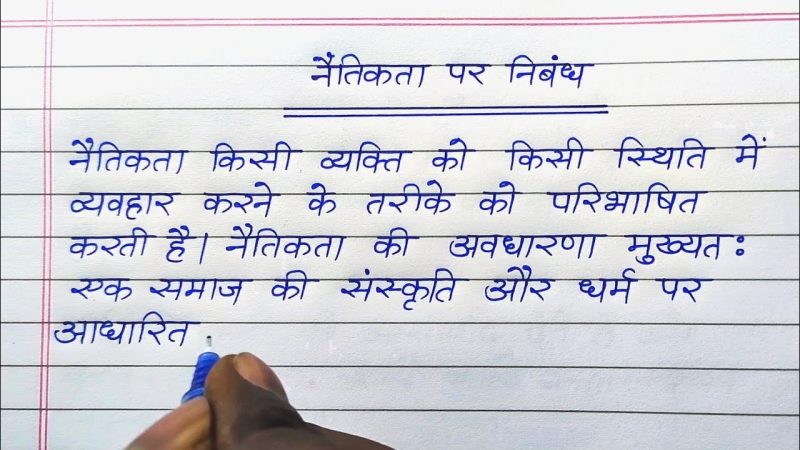 नैतिकता पर निबंध
नैतिकता किसी व्यक्ति को किसी स्थिति में
व्यवहार करने के तरीके को परिभाषित
करती है। नैतिकता की अवधारणा मुख्यतः
एक समाज की संस्कृति और धर्म पर
आधारित